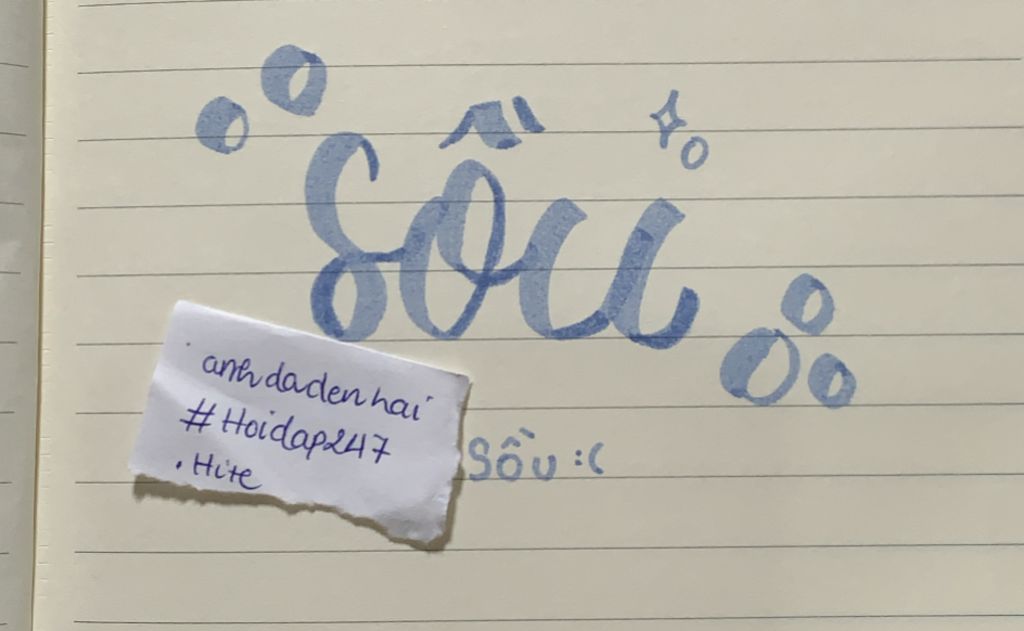 Sồu
anhdadenhai
#Hoidap247
. Hite
Sồu :(